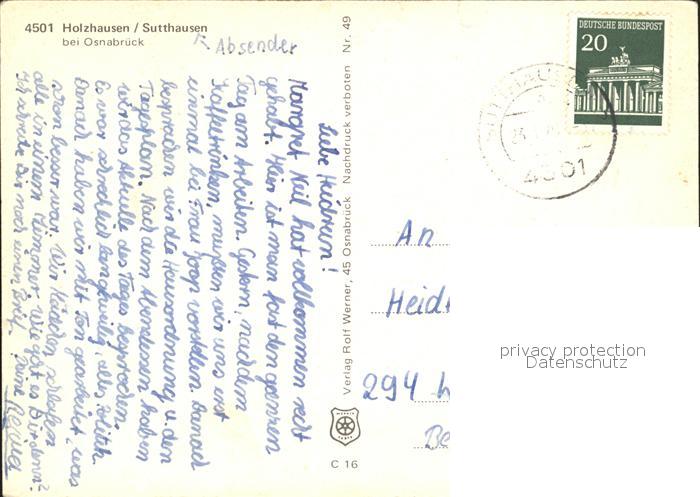 4501 Holzhausen / Sutthausen
bei Osnabrück
Absender
Liebe Heidrun!
Margret Keil hat vollkommen recht
gehabt. Hier ist man fast den ganzen
Tag am Arbeiten. Gestern, nach dem
Kaffeetrinken, mußten wir uns erst
einmal bei Frau Joop vorstellen. Danach
besprachen wir die Hausordnung u. den
Tagesplan. Nach dem Abendessen haben
wir das Aktuelle des Tages besprochen.
Es war schrecklich langweilig, alles Politik.
Danach haben wir mit Ton gearbeitet, was
schon besser war. Wir Mädchen schlafen
alle in einem Zimmer. Wie geht es Dir denn?
Ich schreibe Dir noch einen Brief. Deine
Regina
Verlag Rolf Werner, 45 Osnabrück Nachdruck verboten Nr. 49
C 16
DEUTSCHE BUNDESPOST
20
SUTTHAUSEN
4501
An
Heid
294
Be
privacy protection
Datenschutz